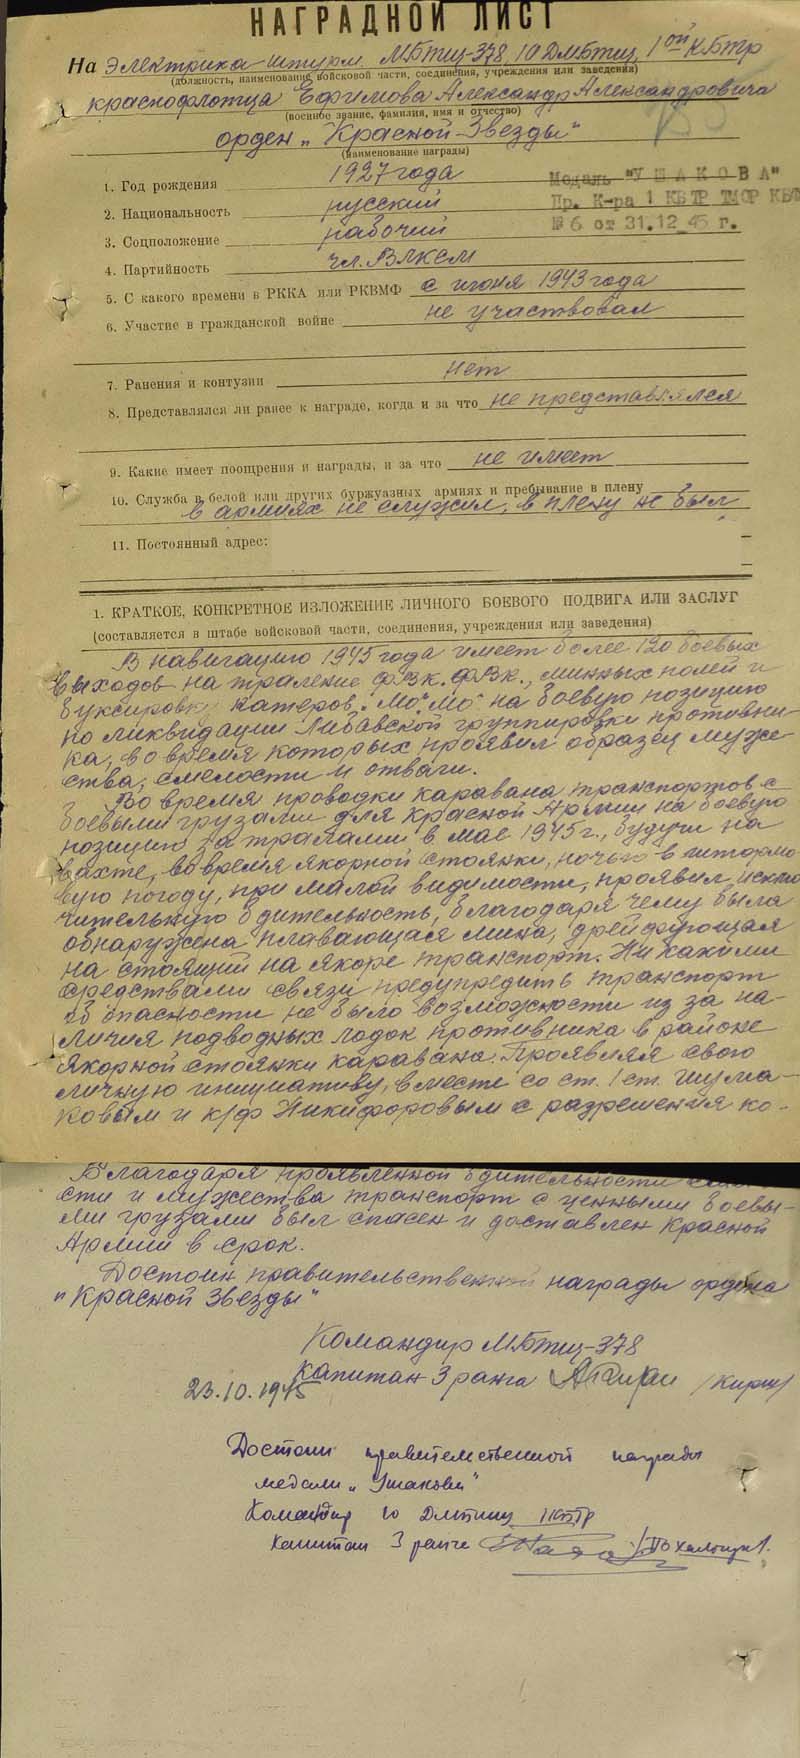 НАГРАДНОЙ ЛИСТ
На Электрика штурм. МБТЩ-378, 10 ДМБТЩ, 1ой КБТр
(должность, наименование войсковой части, соединения, учреждения или заведения)
краснофлотца Ефимова Александр Александровича
(военное звание, фамилия, имя и отчество)
орден „Красной Звезды"
(наименование награды)
1. Год рождения 1927 года
Медаль "УШАКОВА"
2. Национальность русский
Пр. К-ра 1 КБТР ТМОР КБФ
3. Соцположение рабочий
№ 6 от 31.12.45 г.
4. Партийность чл. ВЛКСМ
5. С какого времени в РККА или РКВМФ с июня 1943 года
6. Участие в гражданской войне не участвовал
7. Ранения и контузии нет
8. Представлялся ли ранее к награде, когда и за что не представлялся
9. Какие имеет поощрения и награды, и за что не имеет
10. Служба в белой или других буржуазных армиях и пребывание в плену
в армиях не служил, в плену не был
11. Постоянный адрес:
1. КРАТКОЕ, КОНКРЕТНОЕ ИЗЛОЖЕНИЕ ЛИЧНОГО БОЕВОГО ПОДВИГА ИЛИ ЗАСЛУГ
(составляется в штабе войсковой части, соединения, учреждения или заведения)
В навигацию 1945 года имеет более 120 боевых
выходов на траление Ф.В.К., минных полей и
буксировку катеров „МО" на боевую позицию
по ликвидации Либавской группировки противни-
ка, во время которых проявил образец муже-
ства, смелости и отваги.
Во время проводки каравана транспортов с
боевыми грузами для Красной Армии на боевую
позицию за тралами в мае 1945 г., будучи на
вахте, во время якорной стоянки, ночью в штормо-
вую погоду, при малой видимости, проявил исклю
чительную бдительность, благодаря чему была
обнаружена плавающая мина, дрейфующая
на стоящий на якоре транспорт. Ни какими
средствами связи предупредить транспорт
об опасности не было возможности из за на-
личия подводных лодок противника в районе
якорной стоянки каравана. Проявляя свою
личную инициативу, вместе со ст. 1 ст. Шума-
ковым и к/ф Никифоровым с разрешения ко-
Благодаря проявленной бдительности
сти и мужества транспорт с ценными боевы-
ми грузами был спасен и доставлен Красной
Армии в срок.
Достоин правительственной награды ордена
„Красной Звезды"
Командир МБТЩ-378
капитан 3 ранга /Кирш/
23.10.1945
Достоин правительственной награды
медали „Ушакова"
Командир 10 1 КБТР
Капитан 3 ранга